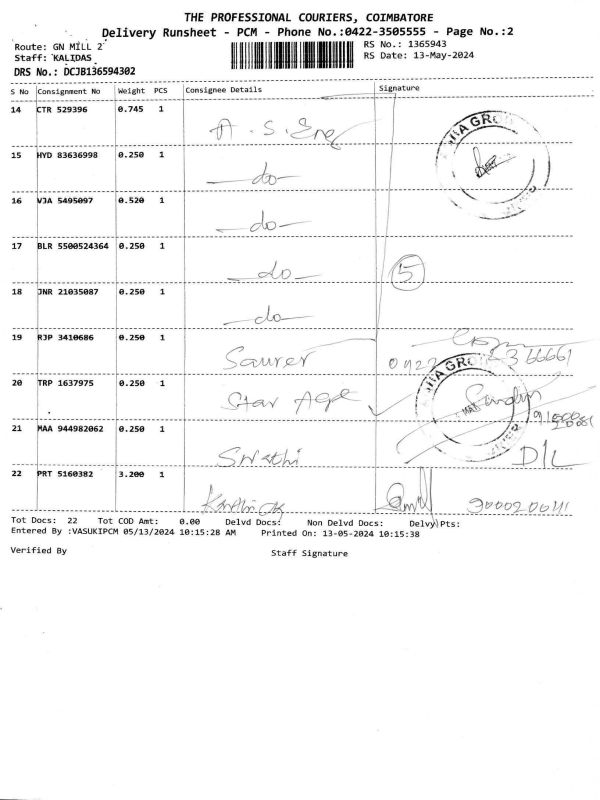 THE PROFESSIONAL COURIERS, COIMBATORE
Delivery Runsheet - PCM - Phone No.:0422-3505555 - Page No.:2
Route: GN MILL 2
RS No.: 1365943
Staff: KALIDAS
RS Date: 13-May-2024
DRS No.: DCJB136594302
S No Consignment No Weight PCS Consignee Details Signature
14 CTR 529396 0.745 1 A. S. Eng
15 HYD 83636998 0.250 1 -do-
16 VJA 5495097 0.520 1 -do-
17 BLR 5500524364 0.250 1 -do- 5
18 JNR 21035087 0.250 1 -do-
19 RJP 3410686 0.250 1 Saurer
20 TRP 1637975 0.250 1 Star Age
21 MAA 944982062 0.250 1 Swathi D/L
22 PRT 5160382 3.200 1
Tot Docs: 22 Tot COD Amt: 0.00 Delvd Docs: Non Delvd Docs: Delvy Pts:
Entered By :VASUKIPCM 05/13/2024 10:15:28 AM Printed On: 13-05-2024 10:15:38
Verified By Staff Signature